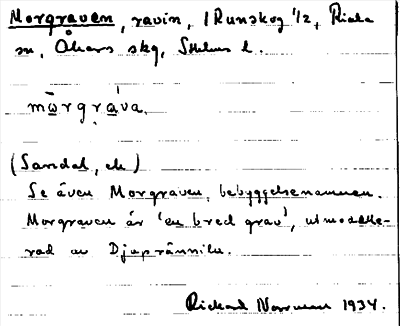 Morgraven, ravin, i Runskog 1/2, Riala
sn, Åkers skg, Sthlms l.
mɷ̄rgrava.
(Sandal, ek)
Se även Morgraven, bebyggelsenamnen.
Morgraven är 'en bred grav', utmodelle-
rad av Djupränniln.
Rickard Norrman 1934.